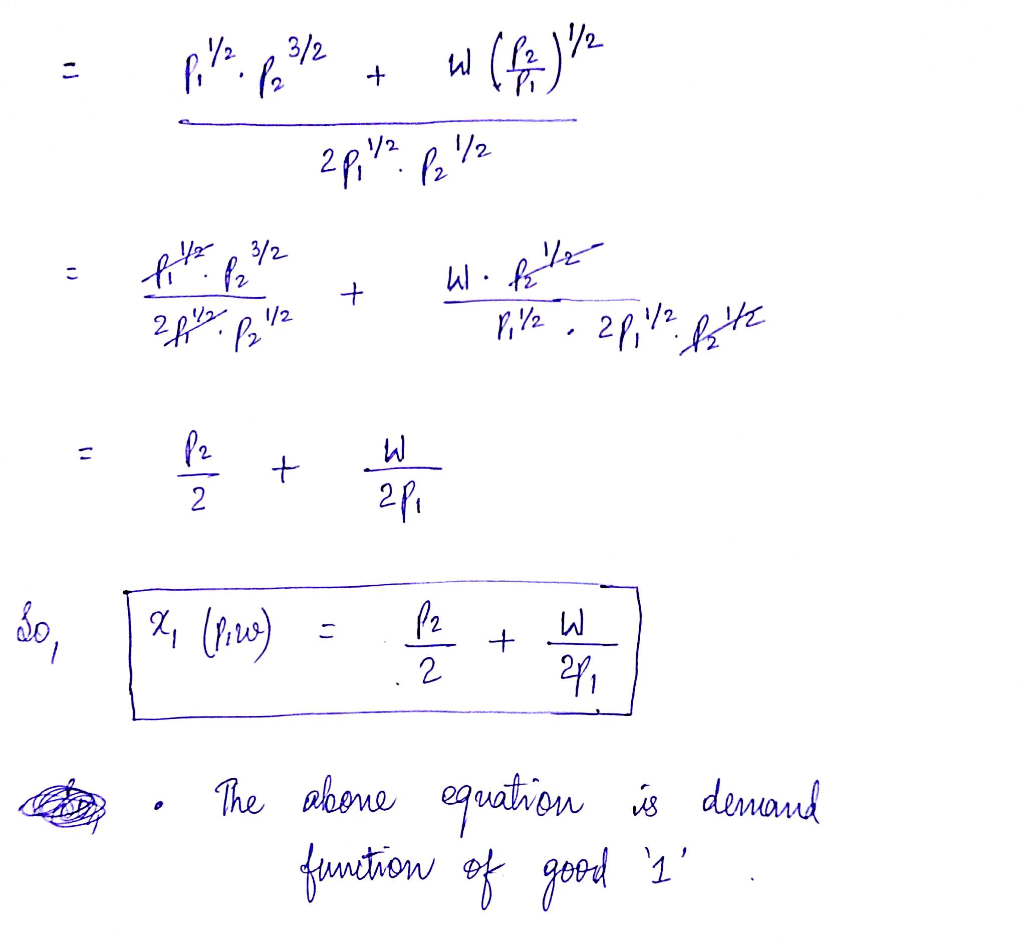 = (p₁^1/2 . p₂^3/2 + W (p₂/p₁)^1/2) / (2p₁^1/2 . p₂^1/2)
= (p₁^1/2 . p₂^3/2) / (2p₁^1/2 . p₂^1/2) + (W . p₂^1/2) / (p₁^1/2 . 2p₁^1/2 . p₂^1/2)
= p₂/2 + W/2p₁
So, x₁ (p₁w) = p₂/2 + W/2p₁
• The above equation is demand
function of good '1' .